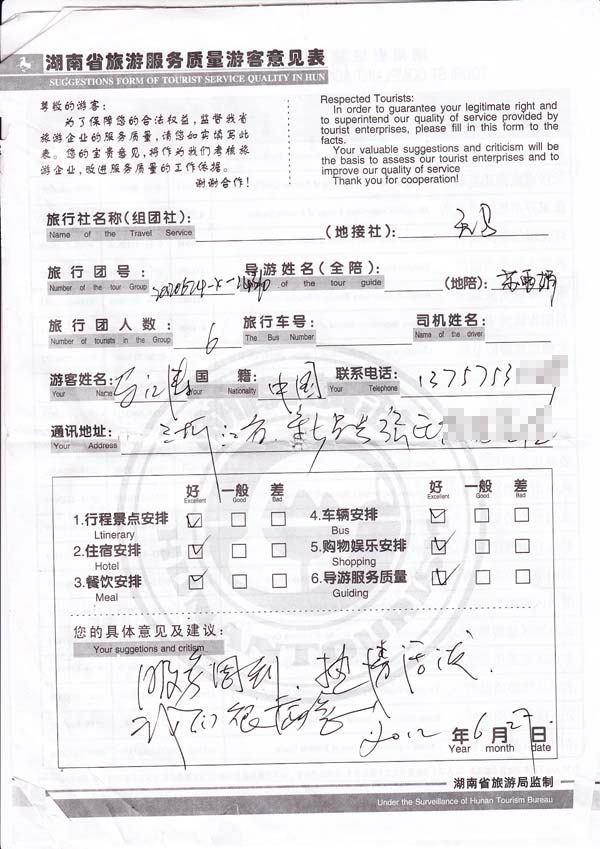 湖南省旅游服务质量游客意见表
SUGGESTIONS FORM OF TOURIST SERVICE QUALITY IN HUN
尊敬的游客:
为了保障您的合法权益,监督我省
旅游企业的服务质量,请您如实填写此
表。您的宝贵意见,将作为我们考核旅
游企业,改进服务质量的工作依据。
谢谢合作!
Respected Tourists:
In order to guarantee your legitimate right and
to superintend our quality of service provided by
tourist enterprises, please fill in this form to the
facts.
Your valuable suggestions and criticism will be
the basis to assess our tourist enterprises and to
improve our quality of service
Thank you for cooperation!
旅行社名称(组团社): (地接社):
Name of the Travel Service
旅行团号: 导游姓名(全陪): (地陪):
Number of the tour Group of the tour guide
旅行团人数: 6 旅行车号: 司机姓名:
Number of tourists in the Group The Bus Number Name of the driver
游客姓名: 国籍: 中国 联系电话: 1375753
Your Name Your Nationality Your Telephone
通讯地址: 浙江省
Your Address
好 一般 差 好 一般 差
Excellent Good Bad Excellent Good Bad
1.行程景点安排 4.车辆安排
Ltinerary Bus
2.住宿安排 5.购物娱乐安排
Hotel Shopping
3.餐饮安排 6.导游服务质量
Meal Guiding
您的具体意见及建议:
Your suggetions and critism
服务周到,热情活泼.
我们很满意
2012 年 6 月 27 日
Year month date
湖南省旅游局监制
Under the Surveillance of Hunan Tourism Bureau